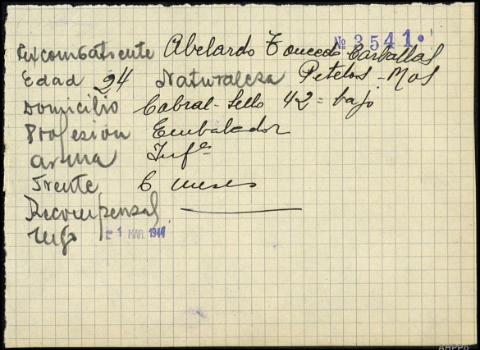 Nº 3541.
Excombatiente Abelardo Toucedo Carballas
Edad 24 Naturaleza Petelos - Mos
Domicilio Cabral - Sello 42 = bajo
Profesion Embalador
Arma Infª
Frente 6 meses
Recompensas
1 MAR 194